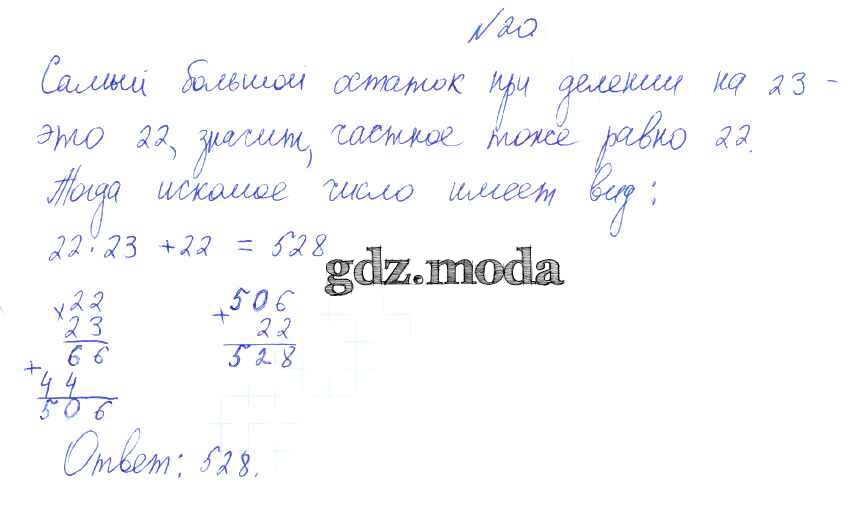 №20
Самый большой остаток при делении на 23 -
это 22, значит, частное тоже равно 22.
Тогда искомое число имеет вид:
22·23 + 22 = 528
gdz.moda
×22
23
66
+
44
506
+506
22
528
Ответ: 528.